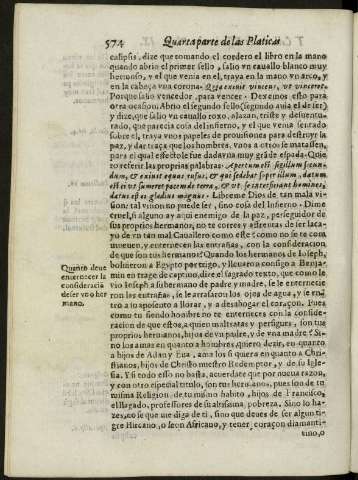 574 Quarta parte de las Platicas
calipsis, dize que tomando el cordero el libro en la mano
quando abrio el primer sello, salio vn cauallo blanco muy
hermoso, y el que venia en el, traya en la mano vn arco, y
en la cabeça vna corona. Qui exiuit vincens, vt vinceret.
Porque salio vencedor, para vencer. Dexemos esto para
otra ocasion. Abrio el segundo sello (segundo auia de ser)
y dize, que salio vn cauallo roxo, alazan, triste y desuentu-
rado, que parecia cosa del infierno, y el que venia sentado
sobre el, traya vnos papeles de prouisiones para destruyr la
paz, y dar traça que los hombres vnos a otros se matassen,
para el qual efecto le fue dada vna muy grãde espada. Quie
ro referir las propias palabras. Apertum est sigillum secun-
dum, & exiuit equus rufus, & qui sedebat super illum, datum
est ei vt sumeret pacem de terra, & vt se interficerent homines,
datus est ei gladius magnus. Libreme Dios de tan mala vi-
sion: tal vision no puede ser, sino cosa del Infierno. Dime
cruel, si alguno ay aqui enemigo de la paz, perseguidor de
sus propios hermanos, no te corres y afrentas de ser laca-
yo de vn tan mal Cauallero como este? como no se te con
mueuen, y enternecen las entrañas, con la consideracion,
de que son tus hermanos? Quando los hermanos de Ioseph,
boluieron a Egypto por trigo, y lleuaron consigo a Benja-
min en trage de captiuo, dize el sagrado texto, que como le
vio Ioseph a su hermano de padre y madre, se le enternecie
ron las entrañas, se le arrasaron los ojos de agua, y se en-
tro a su aposento a llorar, y a desahogar el coraçon. Pues
como tu siendo hombre no te enterneces con la conside-
racion de que estos, a quien maltratas y persigues, son tus
propios hermanos, hijos de vn padre, y de vna madre? Si
no los amas en quanto a hombres, quiero dezir, en quanto
a hijos de Adan y Eua, ama los si quiera en quanto a Chri-
stianos, hijos de Christo nuestro Redemptor, y de su Igle-
sia. Y si todo esso no basta, acuerdate que por nueua razon,
y con otro especial titulo, son tus hermanos, pues son de tu
misma Religion, de tu mismo habito, hijos de Francisco,
el llagado, professores de su altissima pobreza. Sino lo ha-
zes, no se que me diga de ti, sino que deues de ser algun ti-
gre Hircano, o leon Africano, y tener coraçon diamanti-
tino, o
Quanto deue
enternecer la
consideraciõ
de ser vno her
mano.